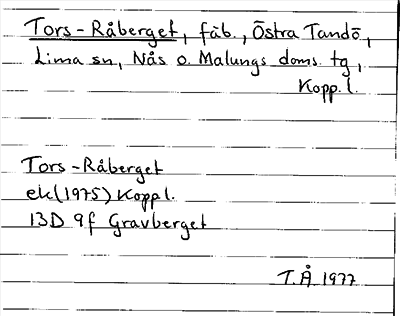 Tors-Råberget, fäb., Östra Tandö,
Lima sn, Nås o. Malungs doms. tg,
Kopp. l.
Tors-Råberget
ek (1975) Koppl.
13D 9f Gravberget
T.Å 1977